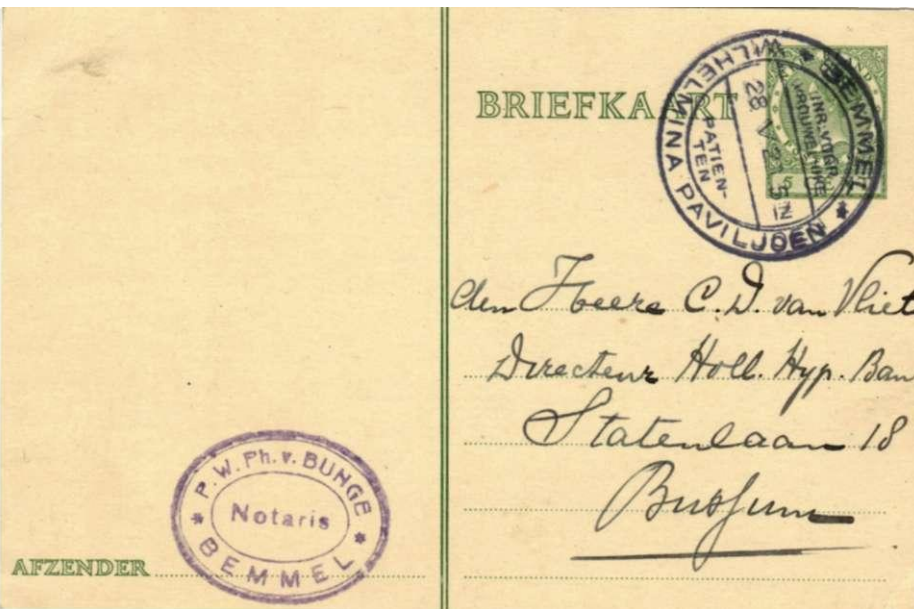 BRIEFKAART
* BEMMEL *
WILHELMINA PAVILJOEN
INR. VOOR
VROUWELIJKE
28 V 2
PATIEN-
TEN
den Heere C. D. van Vliet
Directeur Holl. Hyp. Ban
Statenlaan 18
Bussum
P. W. Ph. v. BUNGE
Notaris
* BEMMEL *
AFZENDER